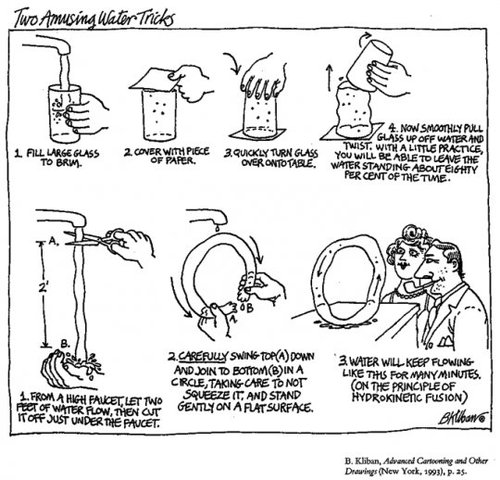 Two Amusing Water Tricks
1. FILL LARGE GLASS
TO BRIM.
2. COVER WITH PIECE
OF PAPER.
3. QUICKLY TURN GLASS
OVER ONTO TABLE.
4. NOW SMOOTHLY PULL
GLASS UP OFF WATER AND
TWIST. WITH A LITTLE PRACTICE,
YOU WILL BE ABLE TO LEAVE THE
WATER STANDING ABOUT EIGHTY
PER CENT OF THE TIME.
A.
2'
B.
1. FROM A HIGH FAUCET, LET TWO
FEET OF WATER FLOW, THEN CUT
IT OFF JUST UNDER THE FAUCET.
B
A
2. CAREFULLY SWING TOP (A) DOWN
AND JOIN TO BOTTOM (B) IN A
CIRCLE, TAKING CARE TO NOT
SQUEEZE IT, AND STAND
GENTLY ON A FLAT SURFACE.
3. WATER WILL KEEP FLOWING
LIKE THIS FOR MANY MINUTES.
(ON THE PRINCIPLE OF
HYDROKINETIC FUSION)
B Kliban ©
B. Kliban, Advanced Cartooning and Other
Drawings (New York, 1993), p. 25.